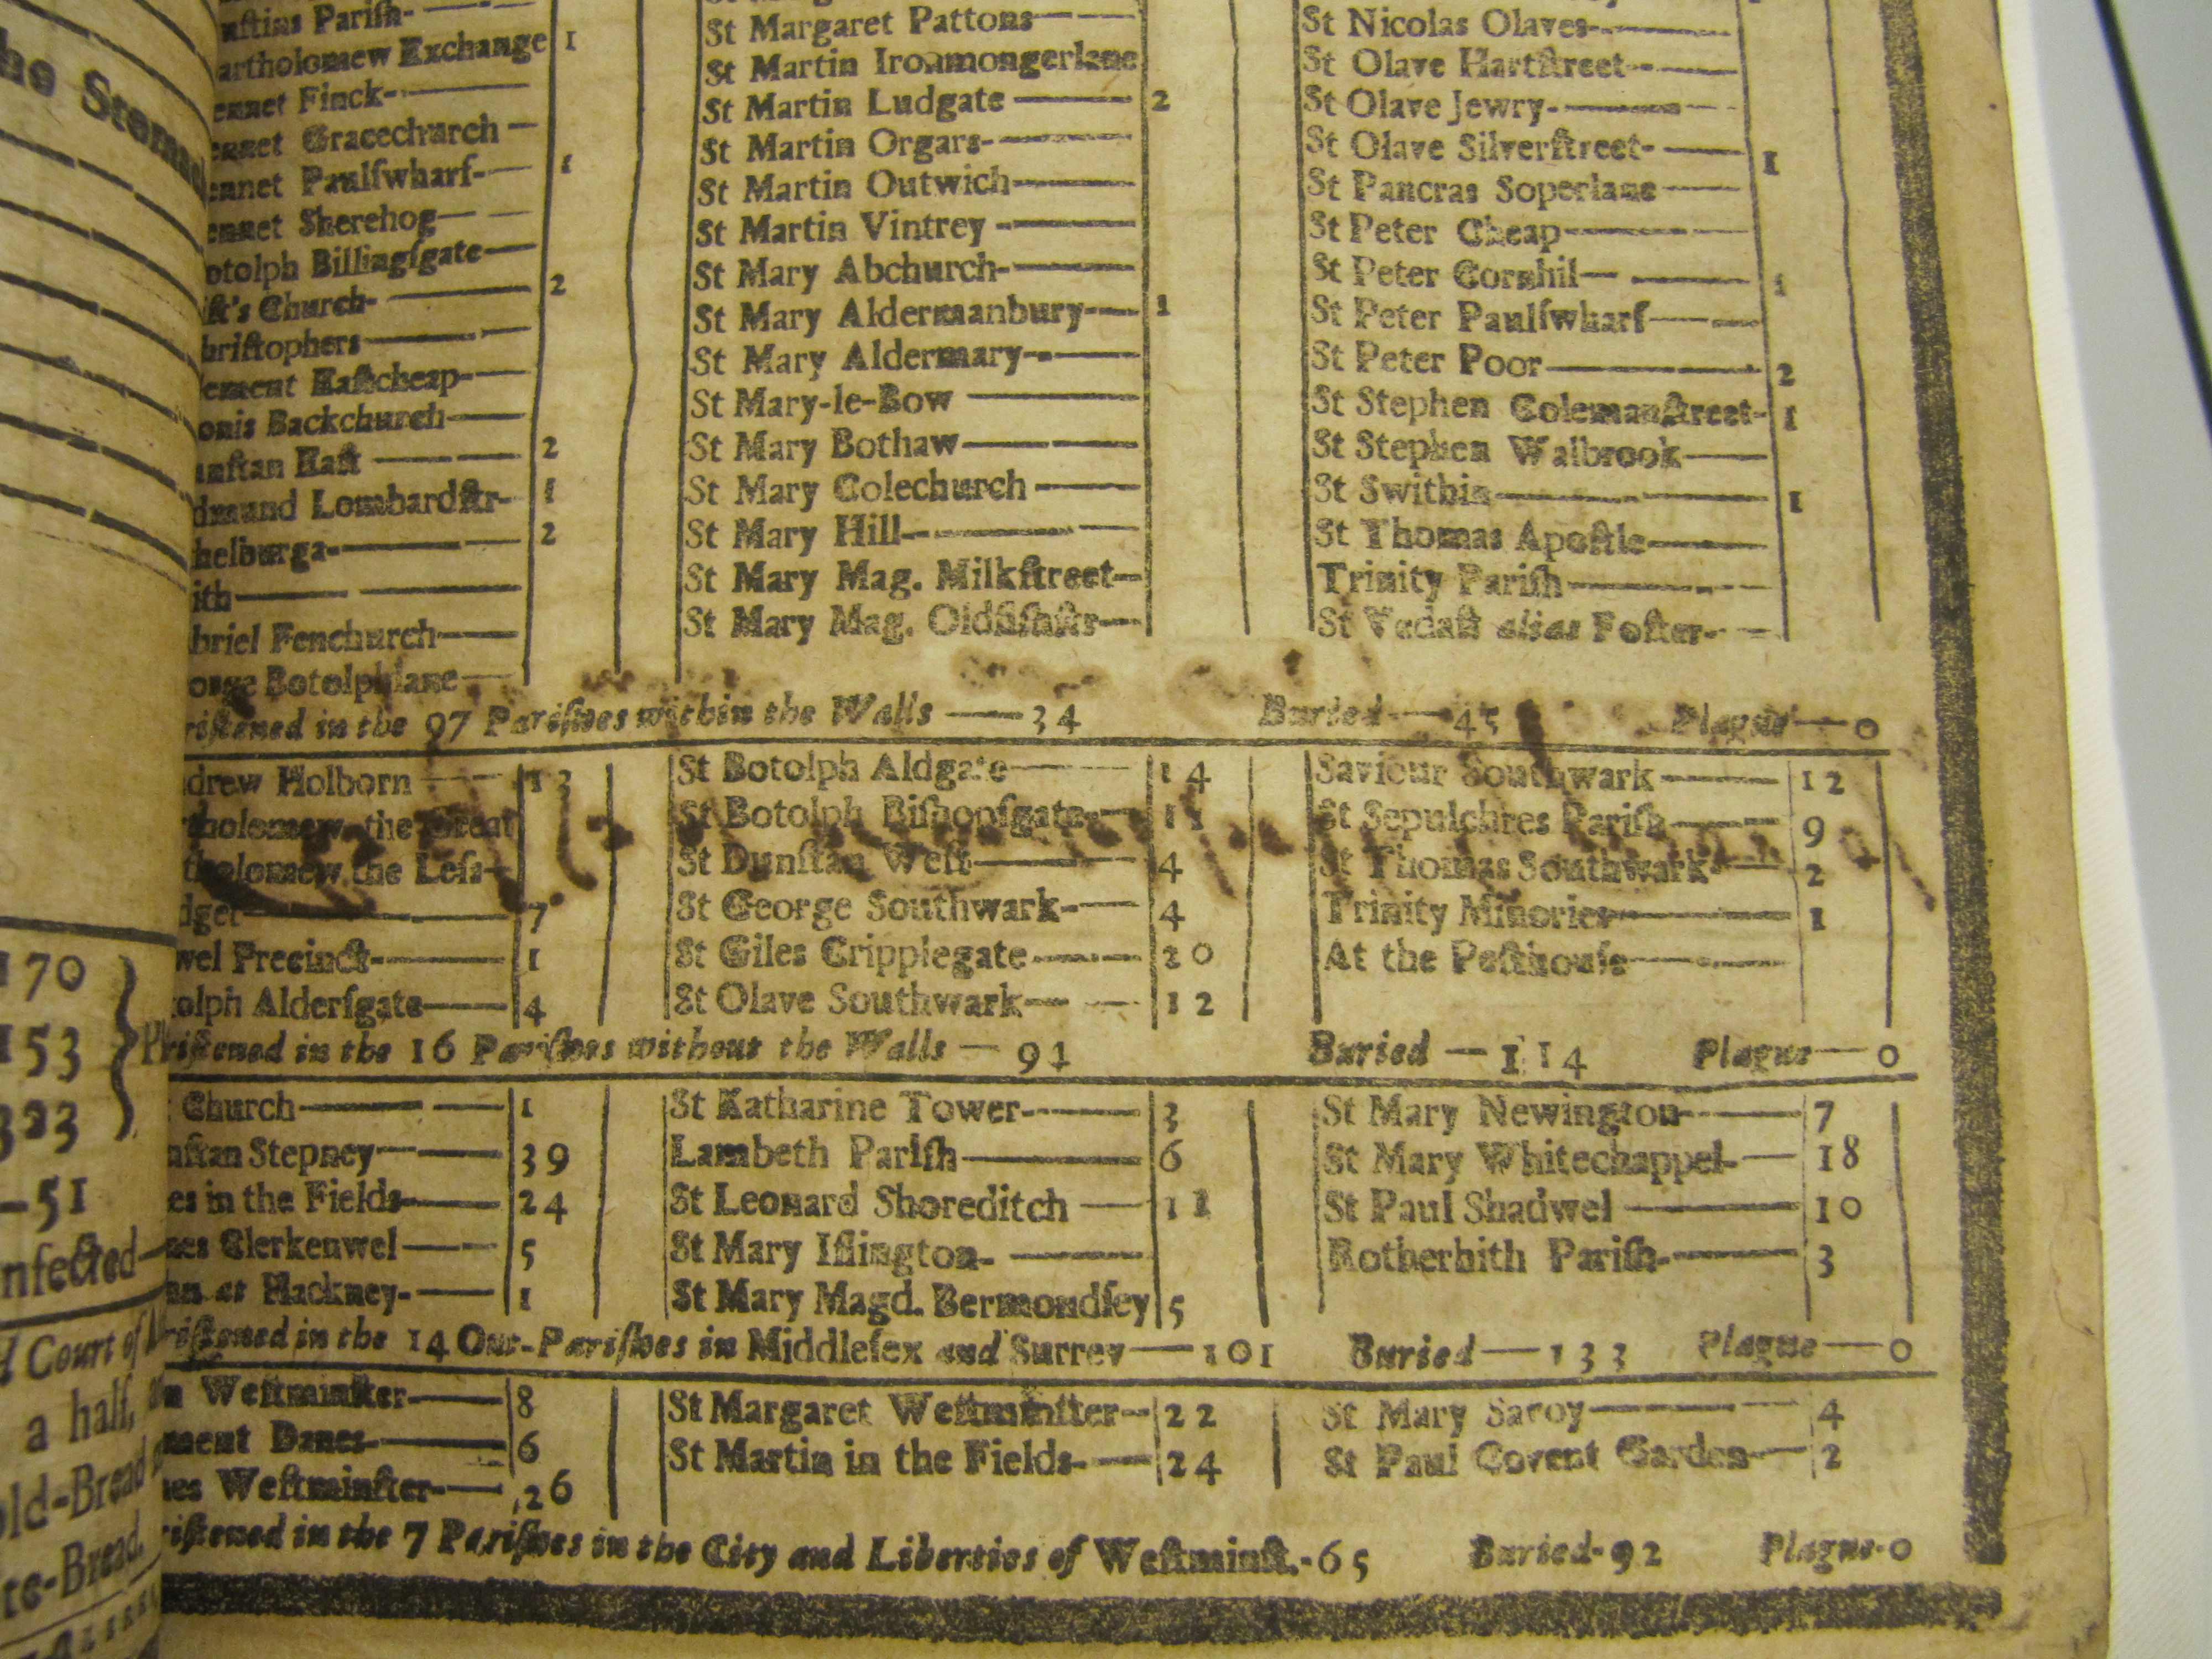 he Stomach
170
153
323
-51
nfected—
Court of
a half,
old-Bread
te-Bread.
nſtins Pariſh-
artholomew Exchange 1
ennet Finck-
ennet Gracechurch
ennet Paulſwharf- 1
ennet Sherehog
otolph Billingſgate
iſt's Church- 2
hriſtophers
ement Eaſtcheap-
onis Backchurch
unſtan Eaſt 2
dmund Lombardſtr- 1
helburga- 2
ith
briel Fenchurch
orge Botolphlane
St Margaret Pattons
St Martin Ironmongerlane
St Martin Ludgate 2
St Martin Orgars-
St Martin Outwich
St Martin Vintrey
St Mary Abchurch-
St Mary Aldermanbury- 1
St Mary Aldermary-
St Mary-le-Bow
St Mary Bothaw
St Mary Colechurch
St Mary Hill-
St Mary Mag. Milkſtreet
St Mary Mag. Oldfiſhſtr
St Nicolas Olaves-
St Olave Hartſtreet-
St Olave Jewry-
St Olave Silverſtreet- 1
St Pancras Soperlane
St Peter Cheap
St Peter Cornhil 1
St Peter Paulſwharf
St Peter Poor 2
St Stephen Colemanſtreet- 1
St Stephen Walbrook
St Swithin 1
St Thomas Apoſtle
Trinity Pariſh
St Vedaſt alias Foſter-
riſtened in the 97 Pariſhes within the Walls — 34 Buried — 45 Plague — 0
drew Holborn 13
rtholomew the Great
tholomew the Leſs
dget 7
wel Precinct- 1
tolph Alderſgate 4
St Botolph Aldgate 14
St Botolph Biſhopſgate 11
St Dunſtan Weſt 4
St George Southwark- 4
St Giles Cripplegate 20
St Olave Southwark 12
Saviour Southwark 12
St Sepulchres Pariſh 9
St Thomas Southwark 2
Trinity Minories 1
At the Peſthouſe
riſtened in the 16 Pariſhes without the Walls — 91 Buried — 114 Plague — 0
Church 1
nſtan Stepney 39
es in the Fields 24
mes Clerkenwel 5
hn at Hackney- 1
St Katharine Tower- 3
Lambeth Pariſh 6
St Leonard Shoreditch 11
St Mary Iſlington-
St Mary Magd. Bermondſey 5
St Mary Newington 7
St Mary Whitechappel- 18
St Paul Shadwel 10
Rotherhith Pariſh- 3
riſtened in the 14 Out-Pariſhes in Middleſex and Surrey — 101 Buried — 133 Plague — 0
n Weſtminſter 8
ment Danes 6
mes Weſtminſter- 26
St Margaret Weſtminſter- 22
St Martin in the Fields- 24
St Mary Savoy 4
St Paul Covent Garden 2
riſtened in the 7 Pariſhes in the City and Liberties of Weſtminſt.-65 Buried-92 Plague-0